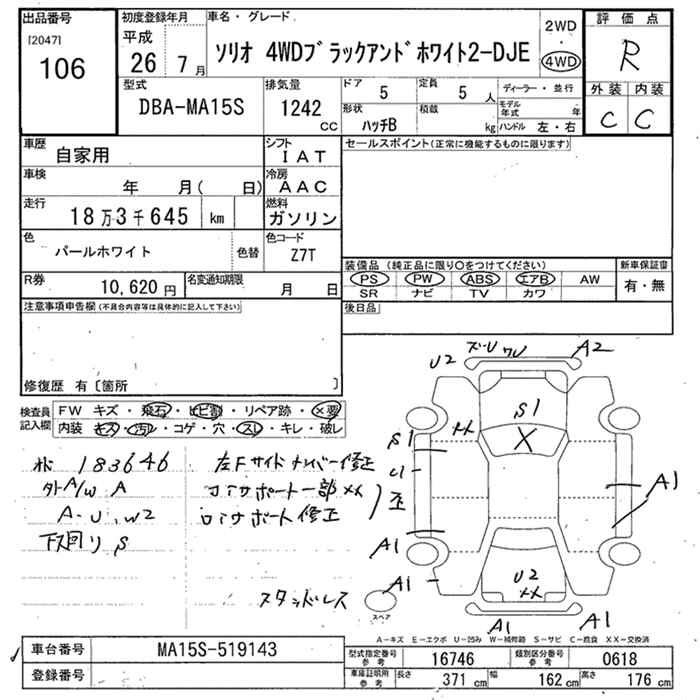 出品番号
[2047]
106
初度登録年月
平成
26 7 月
車名・グレード
ソリオ 4WDブラックアンドホワイト2-DJE
2WD
・
4WD
評価点
R
外装 内装
C C
型式
DBA-MA15S
排気量
1242 CC
ドア
5
定員
5 人
形状
ハッチB
積載
kg
ディーラー・並行
モデル年式 年
ハンドル 左・右
車歴
自家用
シフト
IAT
車検
年 月( 日)
冷房
AAC
走行
18万3千645 km
燃料
ガソリン
色
パールホワイト
色替
色コード
Z7T
R券
10,620 円
名変通知期限
月 日
セールスポイント(正常に機能するものに限ります)
装備品 (純正品に限り○をつけてください)
PS PW ABS エアB AW
SR ナビ TV カワ
新車保証書
有・無
後日品
注意事項申告欄(不具合内容等は具体的に記入して下さい)
修復歴 有〔箇所 〕
検査員
記入欄
FW キズ・飛石・ヒビ割・リペア跡・×要
内装 キズ・汚レ・コゲ・穴・スレ・キレ・破レ
183646
外A/W A
A・U、W2
下回り S
左Fサイドメンバー修正
コアサポート一部XX
コアサポート修正
スタッドレス
U2
A2
S1
X
XX
S1
U1
A1
A1
A1
U2
XX
A1
A1
スペア
A-キズ E-エクボ U-凹み W-補修跡 S-サビ C-腐食 XX-交換済
車台番号
MA15S-519143
登録番号
型式指定番号
参考
16746
類別区分番号
参考
0618
車庫証明用
参考
長さ 371 cm
幅 162 cm
高さ 176 cm